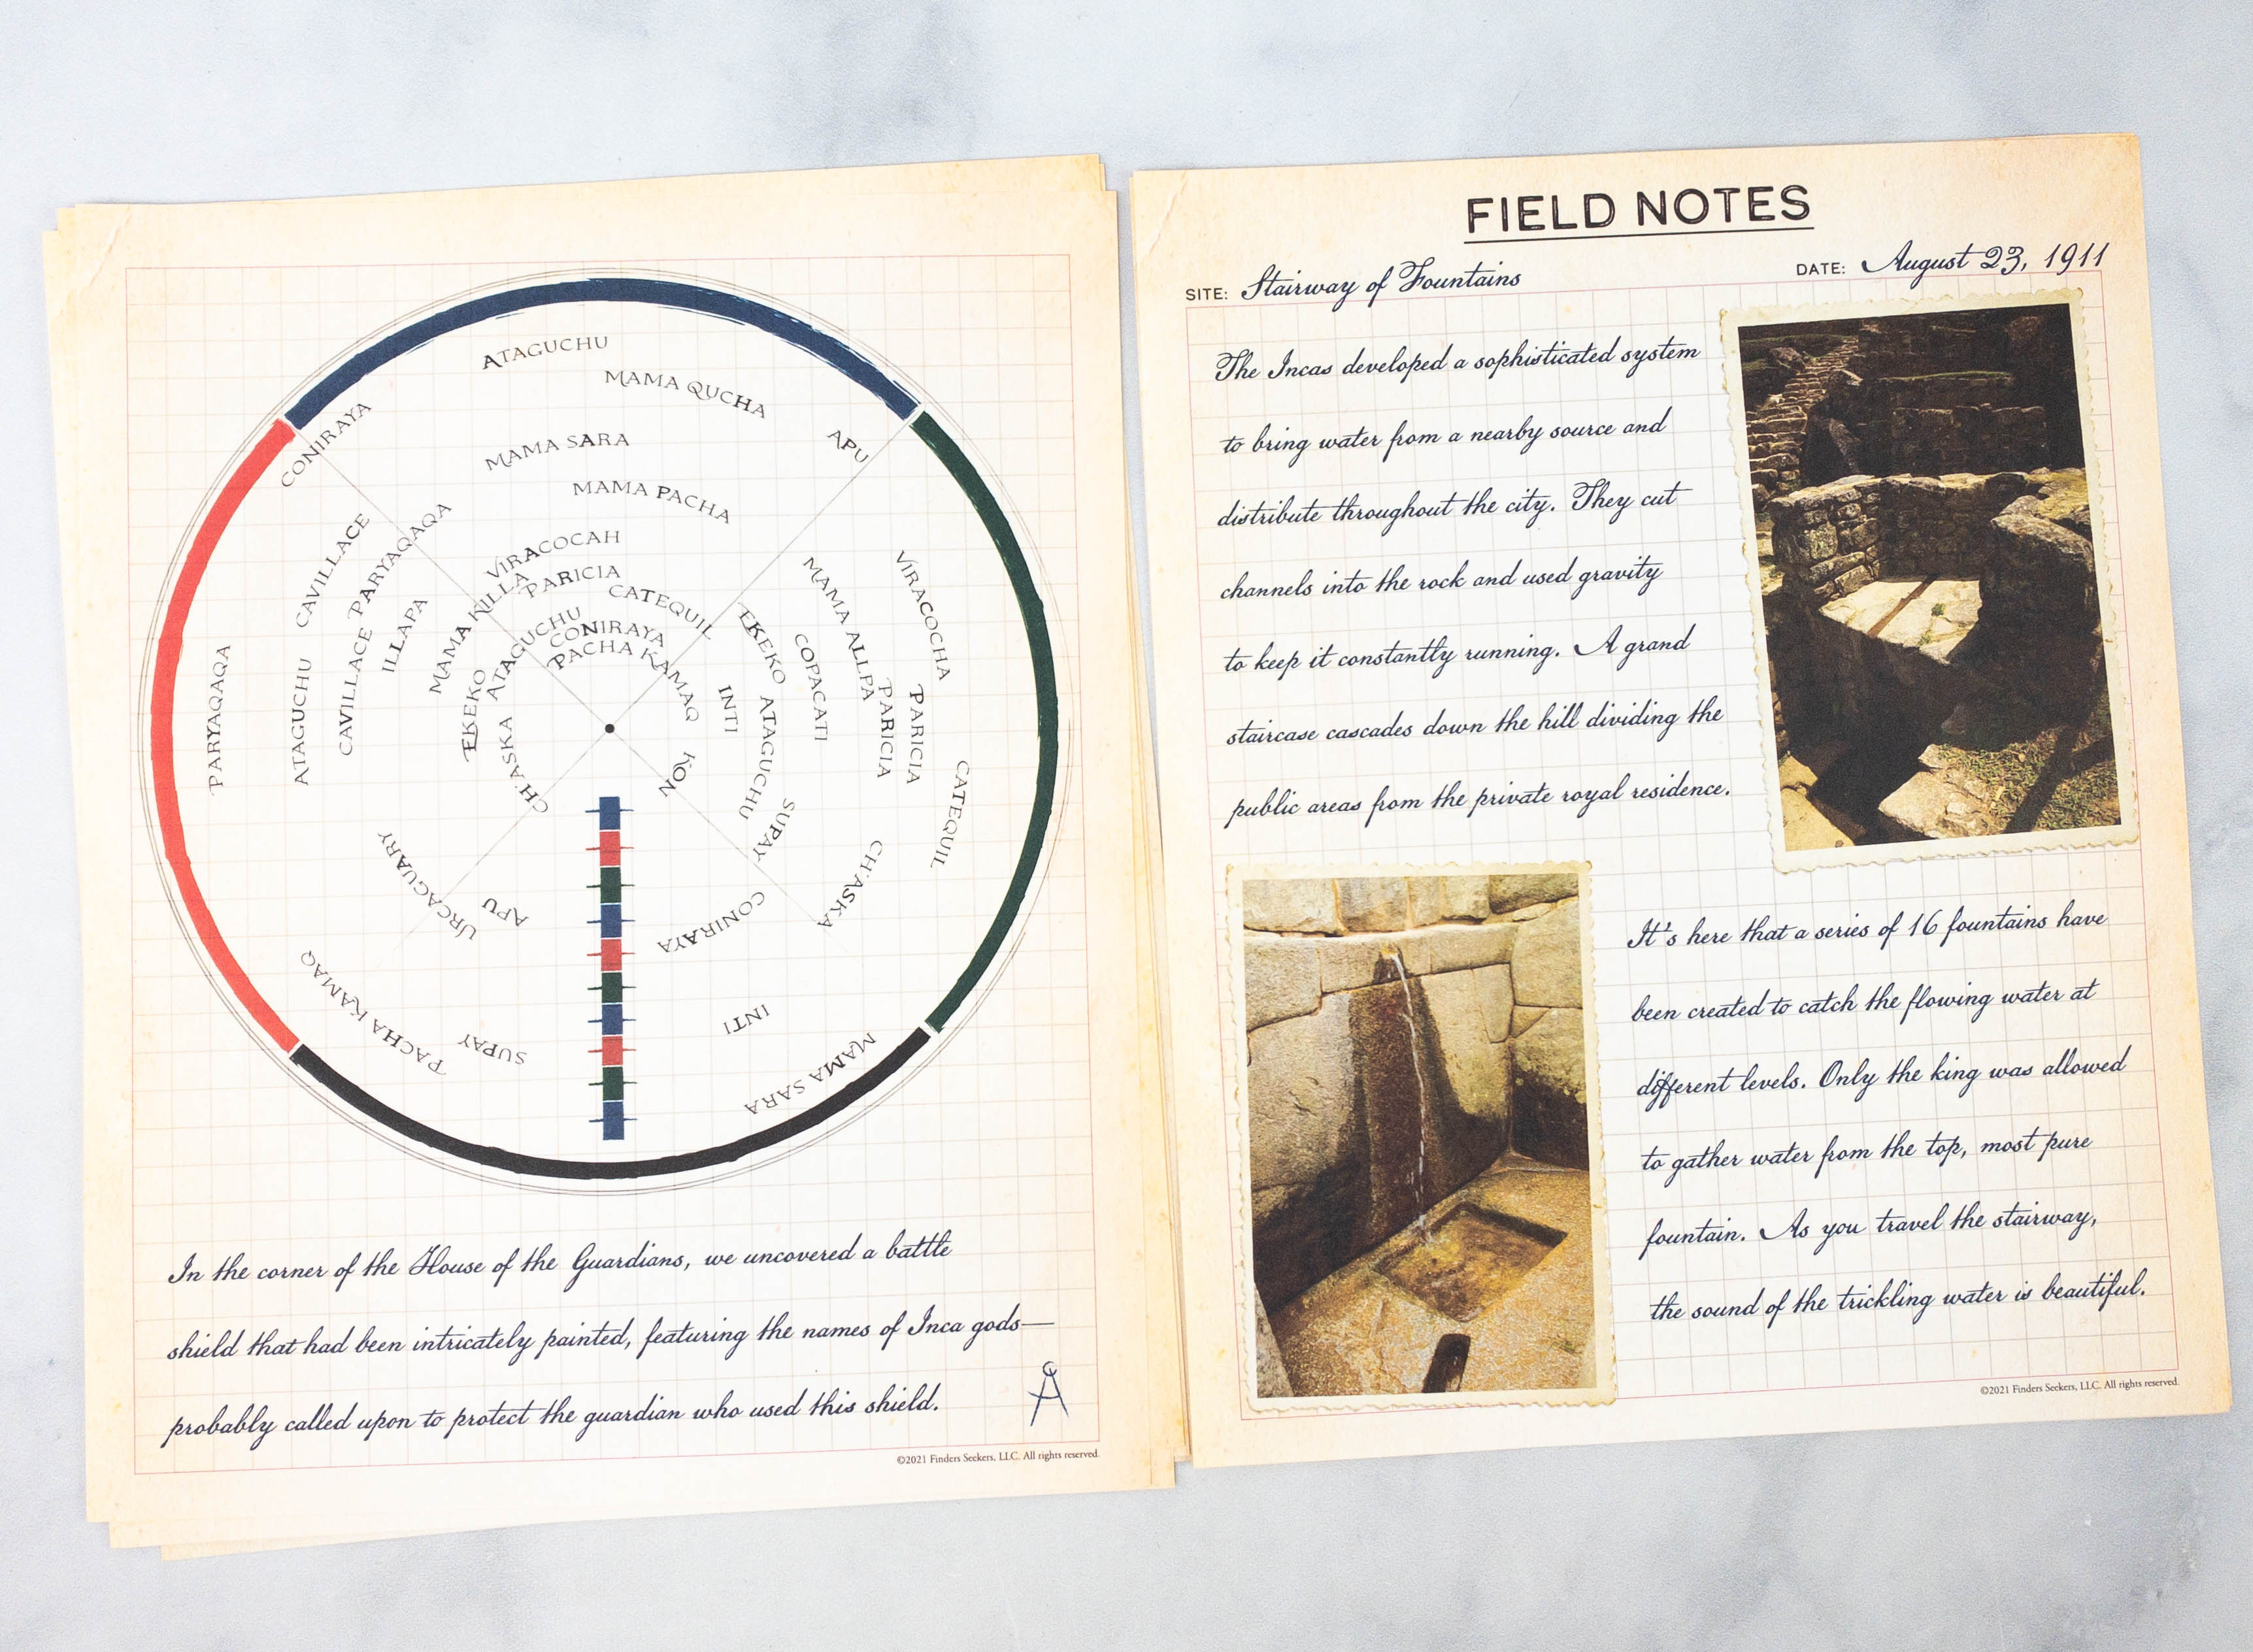 ATAGUCHU
MAMA QUCHA
CONIRAYA
APU
MAMA SARA
MAMA PACHA
CAVILLACE
PARYAQAQA
VIRACOCAH
MAMA KILLA
PARICIA
CATEQUIL
ILLAPA
ATAGUCHU
CONIRAYA
PACHA KAMAQ
EKEKO
MAMA ALLPA
VIRACOCHA
COPACATI
PARYAQAQA
ATAGUCHU
CAVILLACE
EKEKO
CH'ASKA
INTI
ATAGUCHU
PARICIA
PARICIA
KON
SUPAY
CATEQUIL
URCAGUARY
APU
CONIRAYA
CH'ASKA
PACHA KAMAQ
SUPAY
INTI
MAMA SARA
In the corner of the House of the Guardians, we uncovered a battle
shield that had been intricately painted, featuring the names of Inca gods—
probably called upon to protect the guardian who used this shield.
©2021 Finders Seekers, LLC. All rights reserved.
FIELD NOTES
SITE: Stairway of Fountains
DATE: August 23, 1911
The Incas developed a sophisticated system
to bring water from a nearby source and
distribute throughout the city. They cut
channels into the rock and used gravity
to keep it constantly running. A grand
staircase cascades down the hill dividing the
public areas from the private royal residence.
It's here that a series of 16 fountains have
been created to catch the flowing water at
different levels. Only the king was allowed
to gather water from the top, most pure
fountain. As you travel the stairway,
the sound of the trickling water is beautiful.
©2021 Finders Seekers, LLC. All rights reserved.